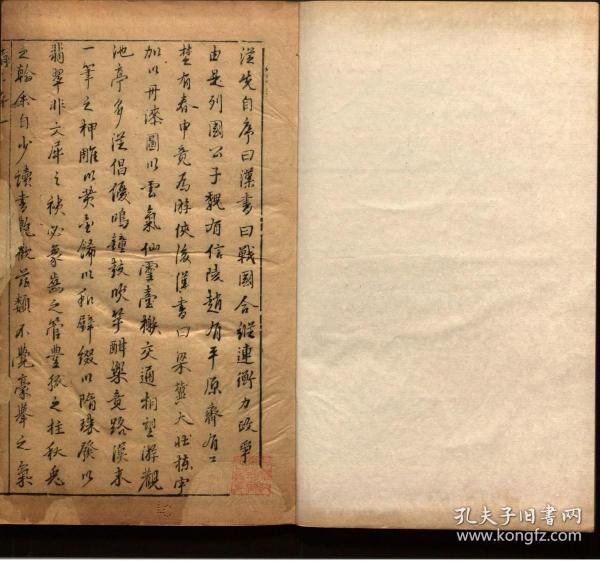 從先自序曰漢書曰戰國合縱連衡力政爭
由是列國公子魏有信陵趙有平原齊有
楚有春申竟為游俠後漢書曰梁冀大
加以丹漆圖以雲氣仙靈臺榭交通相望游觀
池亭多從倡優鳴鐘鼓吹竽酣樂竟路漢末
一筆之押雕以黃金飾以和璧綴以隋珠發以
翡翠非文犀之
必象齒之管豐狐之柱秋兔
之翰余自少讀書
類不覺豪舉之氣
孔夫子旧书网
www.kongfz.com